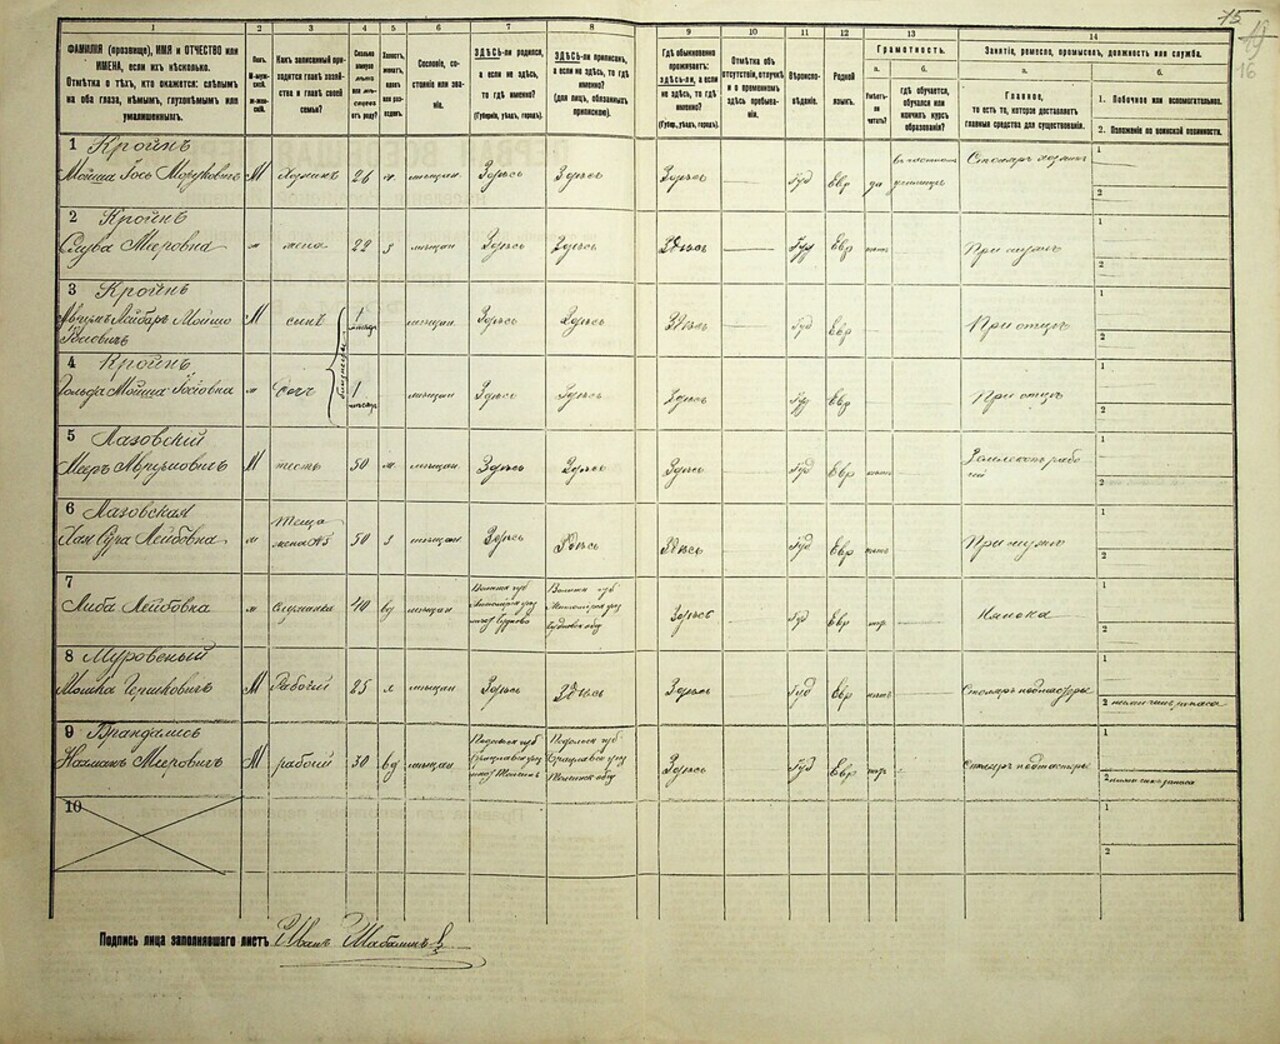 15
19
16
1
2
3
4
5
6
7
8
9
10
11
12
13
14
ФАМИЛІЯ (прозвище), ИМЯ и ОТЧЕСТВО или
ИМЕНА, если ихъ нѣсколько.
Отмѣтка о тѣхъ, кто окажется: слѣпымъ
на оба глаза, нѣмымъ, глухонѣмымъ или
умалишеннымъ.
Полъ.
М-муж-
скій.
Ж-жен-
скій.
Какъ записанный при-
ходится главѣ хозяй-
ства и главѣ своей
семьи?
Сколько
минуло
лѣтъ
или мѣ-
сяцевъ
отъ роду?
Холостъ,
женатъ,
вдовъ
или раз-
веденъ.
Сословіе, со-
стояніе или зва-
ніе.
ЗДѢСЬ-ли родился,
а если не здѣсь,
то гдѣ именно?
(Губернія, уѣздъ, городъ).
ЗДѢСЬ-ли приписанъ,
а если не здѣсь, то гдѣ
именно?
(для лицъ, обязанныхъ
припискою).
Гдѣ обыкновенно
проживаетъ:
здѣсь-ли, а если
не здѣсь, то гдѣ
именно?
(Губер., уѣздъ, городъ).
Отмѣтка объ
отсутствіи, отлучкѣ
и о временномъ
здѣсь пребыва-
ніи.
Вѣроиспо-
вѣданіе.
Родной
языкъ.
Грамотность.
а.
б.
Умѣетъ-
ли
читать?
гдѣ обучается,
обучался или
кончилъ курсъ
образованія?
Занятіе, ремесло, промыселъ, должность или служба.
а.
б.
Главное,
то есть то, которое доставляетъ
главныя средства для существованія.
1. Побочное или вспомогательное.
2. Положеніе по воинской повинности.
1 Кройнъ
М Хозяинъ 26 ж. мѣщан. Здѣсь Здѣсь Здѣсь Іуд Евр да Столяръ хозяинъ
1
2
2 Кройнъ
Слува Мееровна ж жена 22 з мѣщан Здѣсь Здѣсь Здѣсь Іуд Евр При мужѣ
1
2
3 Кройнъ
М сынъ 1 мѣсяц мѣщан. Здѣсь Здѣсь Здѣсь Іуд Евр При отцѣ
1
2
близнецы
4 Кройнъ
Гольда Мойша Іосіовна ж 1 мѣсяц мѣщан Здѣсь Здѣсь Здѣсь Іуд Евр При отцѣ
1
2
5 Лазовскій
Мееръ Аврумовичъ М тесть 50 ж. мѣщан. Здѣсь Здѣсь Здѣсь Іуд Евр
1
2
6 Лазовская
Хая Сура Лейбовна ж теща
жена №5 50 з мѣщан Здѣсь Здѣсь Здѣсь Іуд Евр При мужѣ
1
2
7
Либа Лейбовна ж служанка 40 вд мѣщан Здѣсь Іуд Евр Нянька
1
2
8
Мошка Гершковичъ М Рабочій 25 мѣщан Здѣсь Здѣсь Здѣсь Іуд Евр Столяръ подмастерье
1
2
9
Нахманъ Мееровичъ М рабочій 30 вд мѣщан Здѣсь Іуд Евр Столяръ подмастерье
1
2
10
1
2
Подпись лица заполнявшаго листъ Иванъ